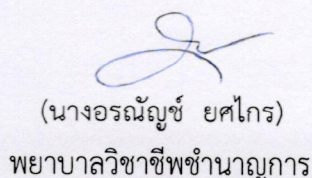 (นางอรณัญช์ ยศไกร)
พยาบาลวิชาชีพชำนาญการ